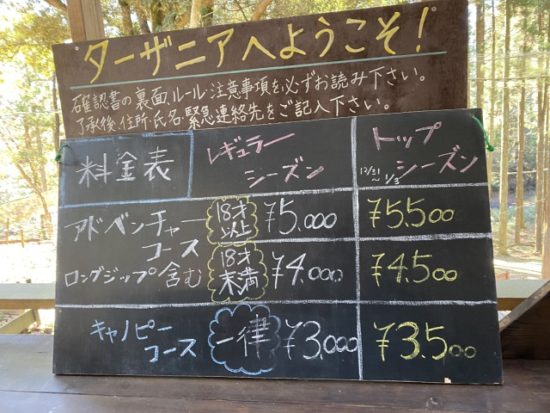 ターザニアへようこそ!
確認書の裏面、ルール・注意事項を必ずお読み下さい。
了承後、住所・氏名・緊急連絡先をご記入下さい。
料金表
レギュラー
シーズン
トップ
12/31~1/3 シーズン
アドベンチャー
コース
ロングジップ含む
18才
以上
¥5,000
¥5,500
18才
未満
¥4,000
¥4,500
キャノピー
コース
一律
¥3,000
¥3,500